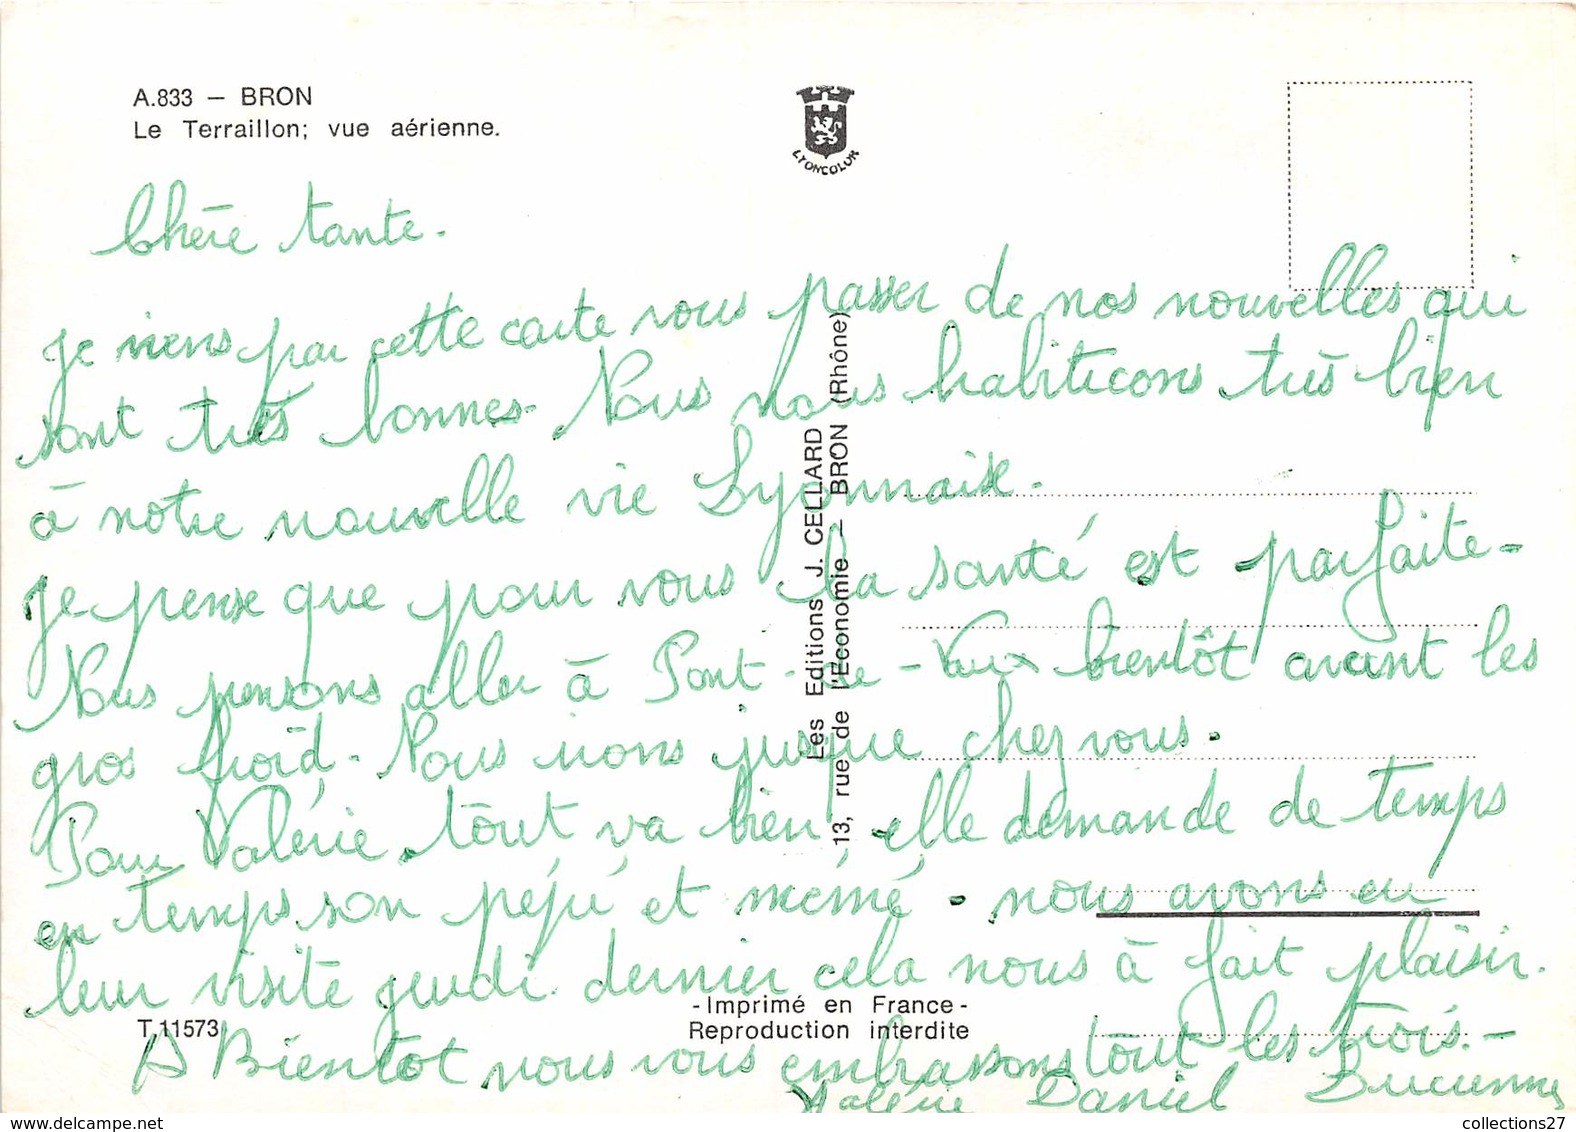 A.833 — BRON
Le Terraillon; vue aérienne.
LYONCOLOR
Chère tante.
je viens par cette carte vous passer de nos nouvelles qui
sont très bonnes. Nous nous habiticons très bien
à notre nouvelle vie Lyonnaise.
Je pense que pour vous la santé est parfaite-
Nous pensons aller à Pont-de-Vaux bientôt avant les
gros froid. Nous irons jusque chez vous.
Pour Valérie tout va bien, elle demande de temps
en temps son pépé et mémé. nous avons eu
leur visite jeudi dernier cela nous à fait plaisir.
A Bientot nous vous embrassons tout les trois.-
Valérie Daniel Lucienne
Les Editions J. CELLARD
13, rue de l'Economie — BRON (Rhône)
-Imprimé en France-
Reproduction interdite
T.11573
collections27